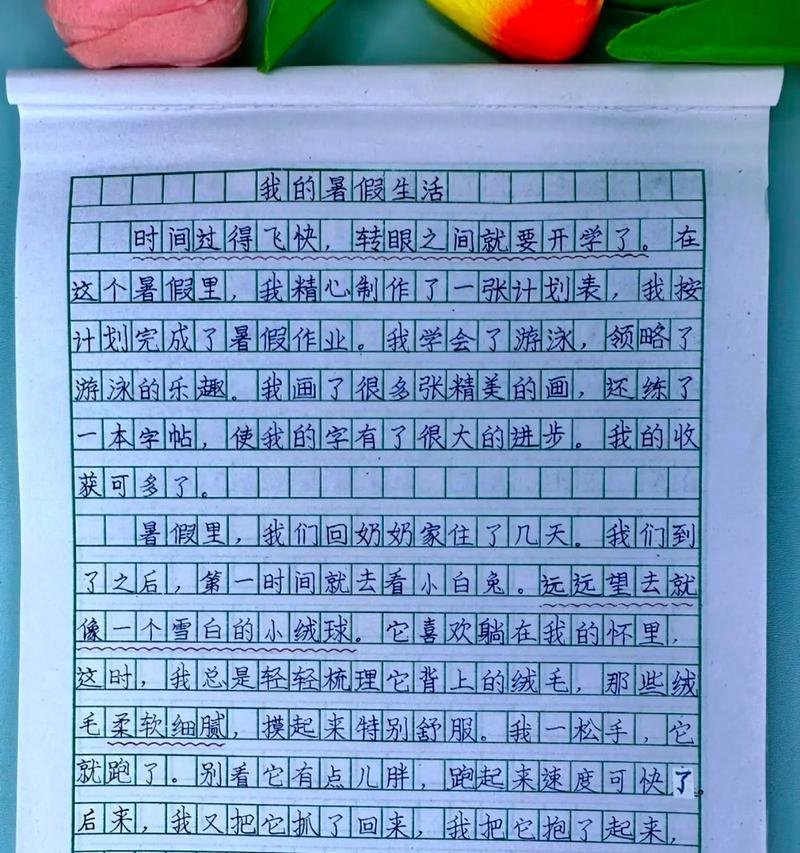 我的暑假生活
时间过得飞快，转眼之间就要开学了。在
这个暑假里，我精心制作了一张计划表，我按
计划完成了暑假作业。我学会了游泳，领略了
游泳的乐趣。我画了很多张精美的画，还练了
一本字帖，使我的字有了很大的进步。我的收
获可多了。
暑假里，我们回奶奶家住了几天。我们到
了之后，第一时间就去看小白兔。远远望去就
像一个雪白的小绒球。它喜欢躺在我的怀里，
这时，我总是轻轻梳理它背上的绒毛，那些绒
毛柔软细腻，摸起来特别舒服。我一松手，它
就跑了。别看它有点儿胖，跑起来速度可快了。
后来，我又把它抓了回来，我把它抱了起来，